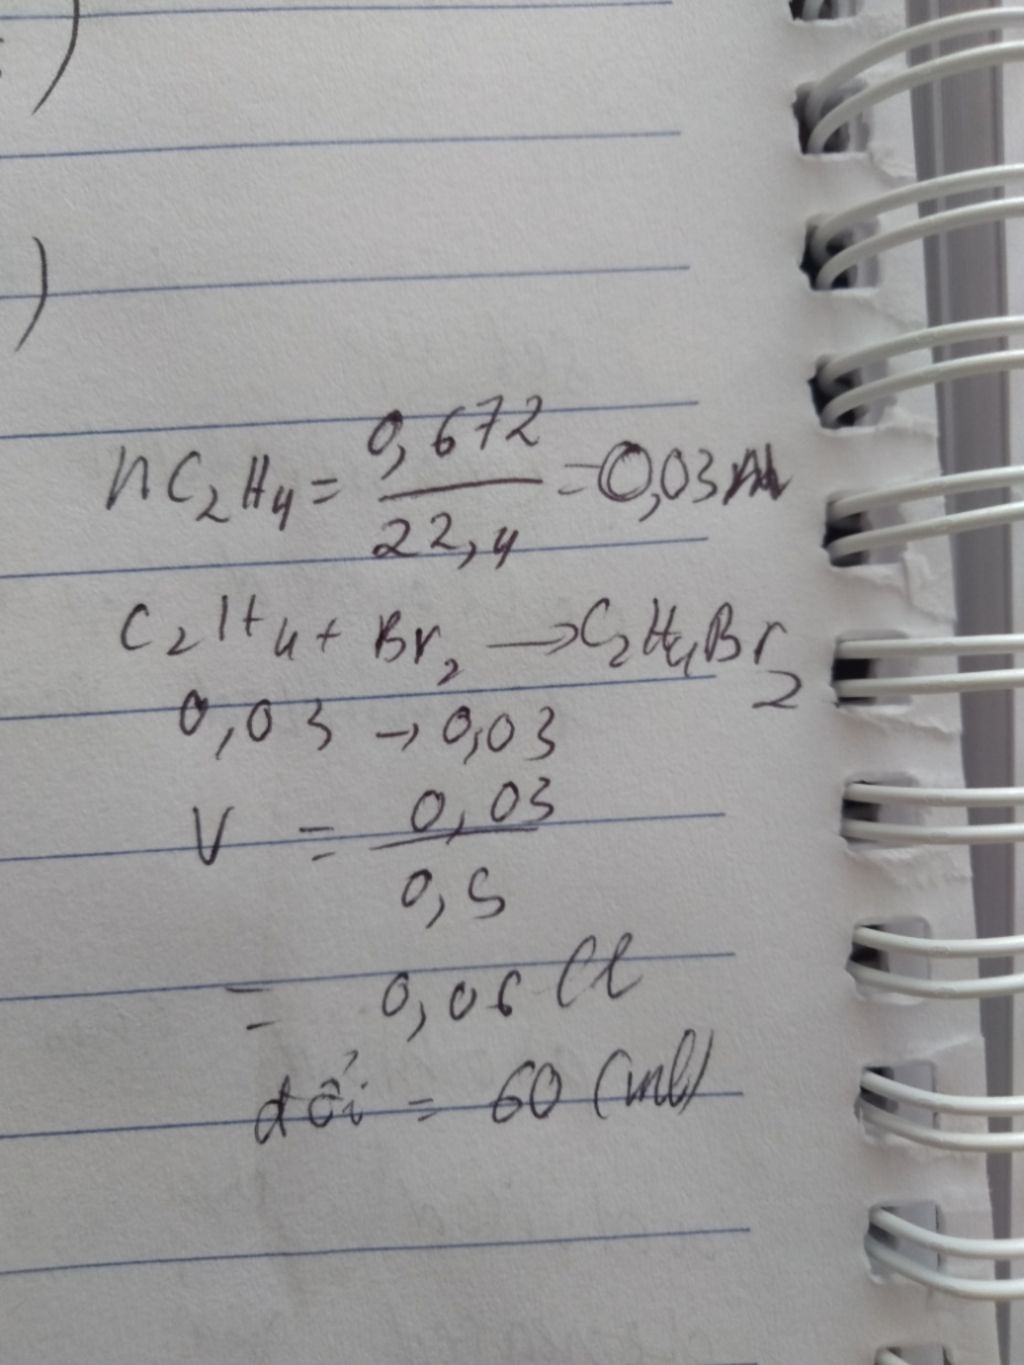 )
)
nC₂H₄ = 0,672 / 22,4 = 0,03
C₂H₄ + Br₂ → C₂H₄Br₂
0,03 → 0,03
V = 0,03 / 0,5
= 0,06 (l
đổi = 60 (ml)